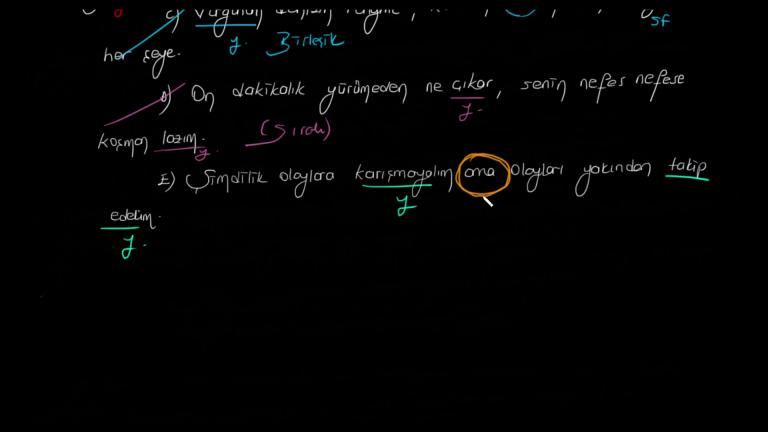 her şeye.
y. Birleşik
sf
D) On dakikalık yürümeden ne çıkar, senin nefes nefese
y.
koşman lazım.
y. (Sıralı)
E) Şimdilik olaylara karışmayalım ama olayları yakından takip
y
edelim.
y.